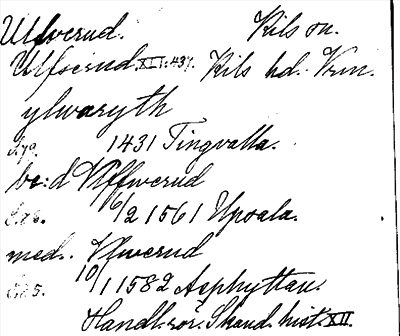 Ulfverud. Kils sn.
Ulfserud XII:437. Kils hd. Vrm.
ylwaryth
1431 Tingvalla.
be:d Vlffwerud
16/2 1561 Upsala.
med. Vlwerud
10/1 1582 Asphyttan.
Handl. rör. Skand. hist. XII.